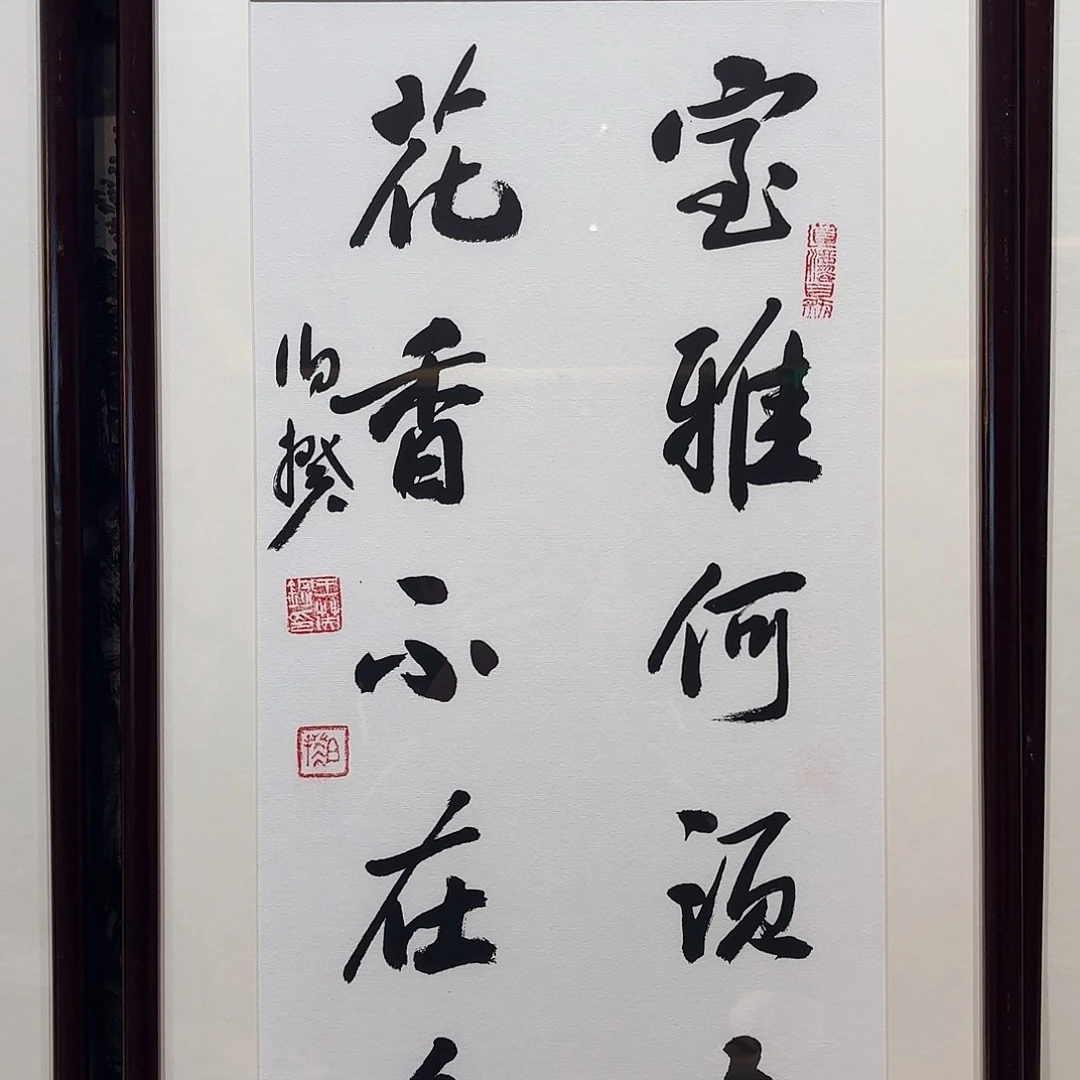 室雅何须
花香不在
伯揆